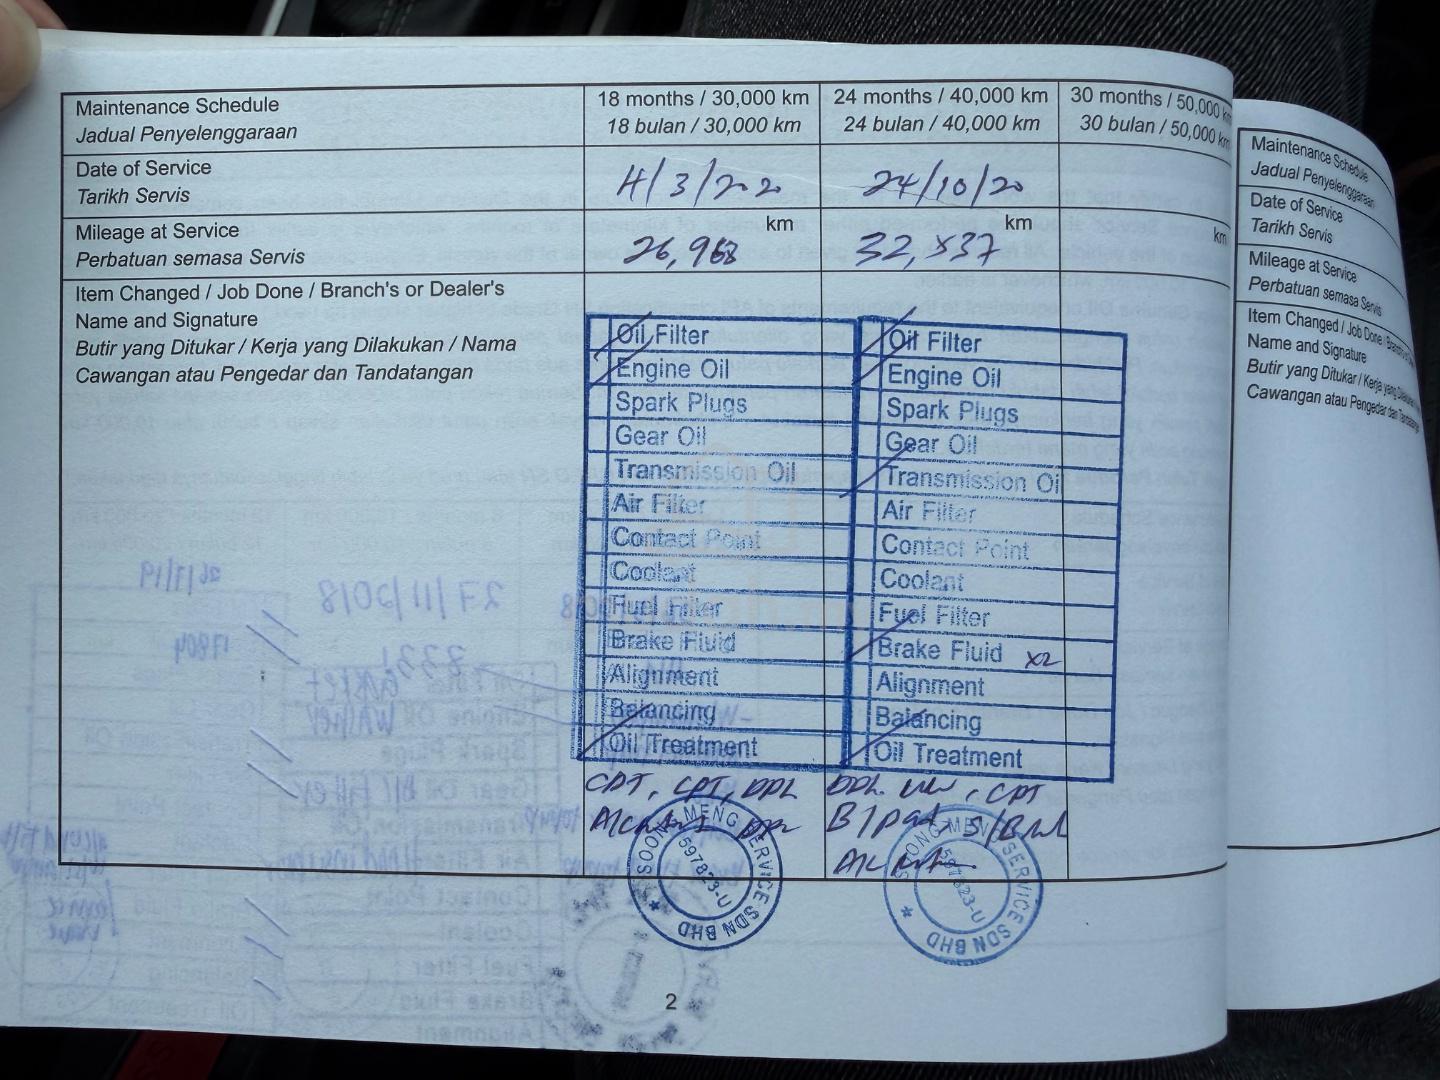 Maintenance Schedule
Jadual Penyelenggaraan
18 months / 30,000 km
18 bulan / 30,000 km
24 months / 40,000 km
24 bulan / 40,000 km
30 months / 50,000 km
30 bulan / 50,000 km
Date of Service
Tarikh Servis
24/10/20
Mileage at Service
Perbatuan semasa Servis
km
26,968
km
km
Item Changed / Job Done / Branch's or Dealer's
Name and Signature
Butir yang Ditukar / Kerja yang Dilakukan / Nama
Cawangan atau Pengedar dan Tandatangan
Oil Filter
Engine Oil
Spark Plugs
Gear Oil
Transmission Oil
Air Filter
Contact Point
Coolant
Fuel Filter
Brake Fluid
Alignment
Balancing
Oil Treatment
Oil Filter
Engine Oil
Spark Plugs
Gear Oil
Transmission Oil
Air Filter
Contact Point
Coolant
Fuel Filter
Brake Fluid x2
Alignment
Balancing
Oil Treatment
CPT
B/pad
SOONG MENG SERVICE SDN BHD
597823-U
SOONG MENG SERVICE SDN BHD
597823-U
2
Maintenance Schedule
Jadual Penyelenggaraan
Date of Service
Tarikh Servis
Mileage at Service
Perbatuan semasa Servis
Item Changed / Job Done / Branch's or
Name and Signature
Butir yang Ditukar / Kerja yang
Cawangan atau Pengedar dan